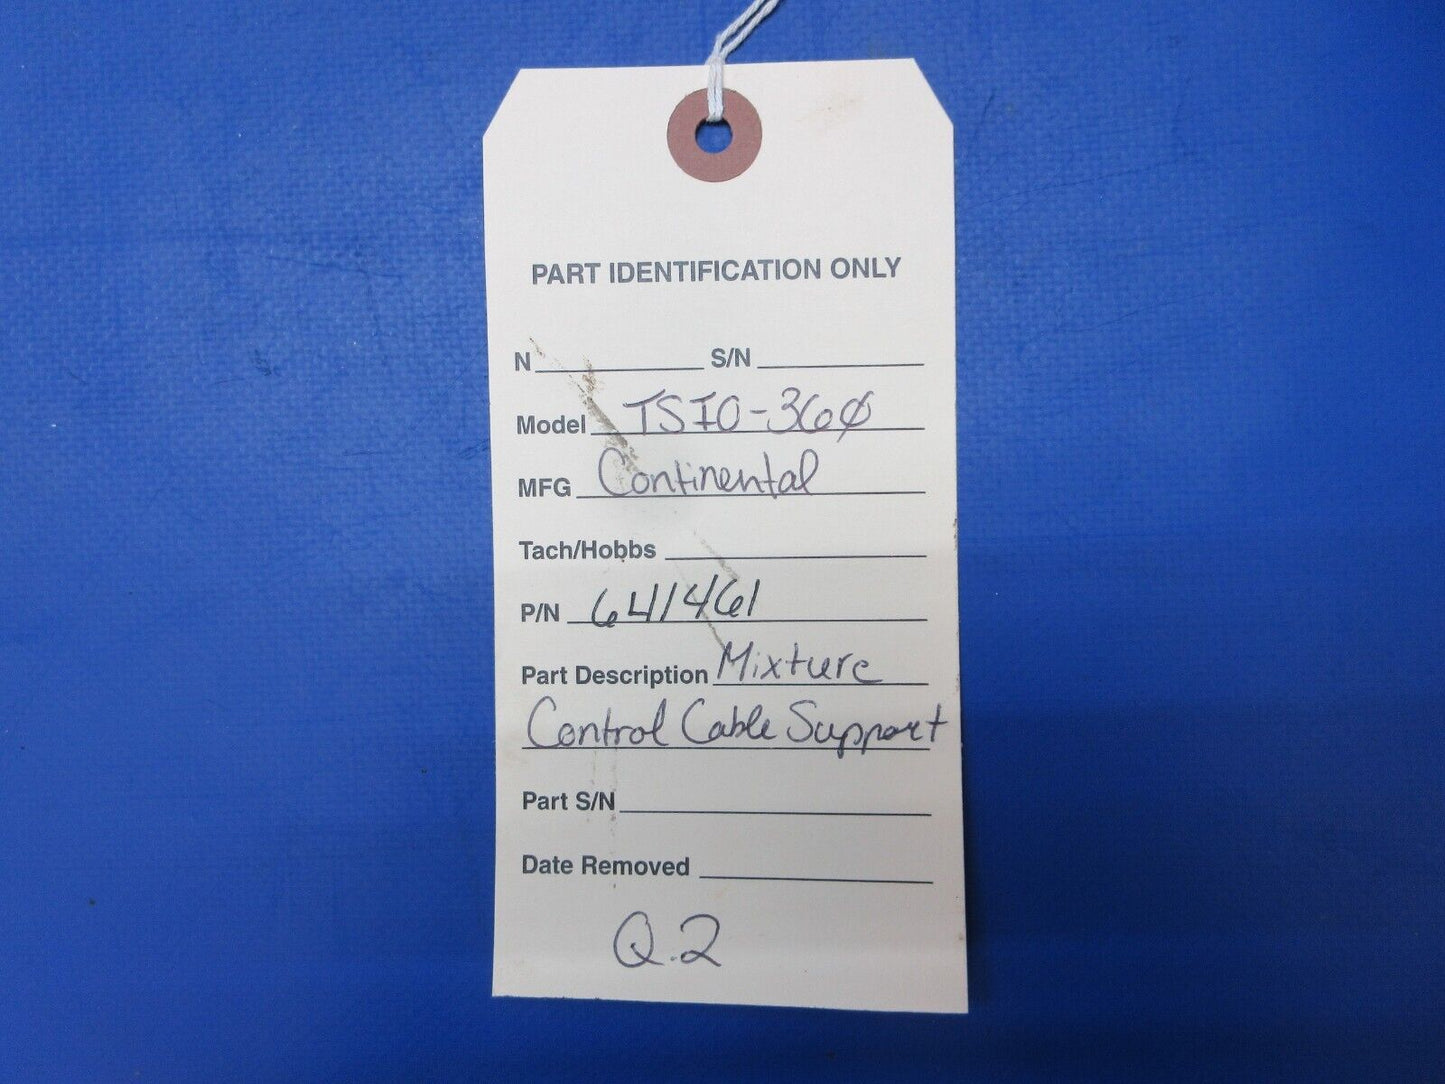 PART IDENTIFICATION ONLY
N S/N
Model TSIO-360
MFG Continental
Tach/Hobbs
P/N 641461
Part Description Mixture
Control Cable Support
Part S/N
Date Removed
Q.2